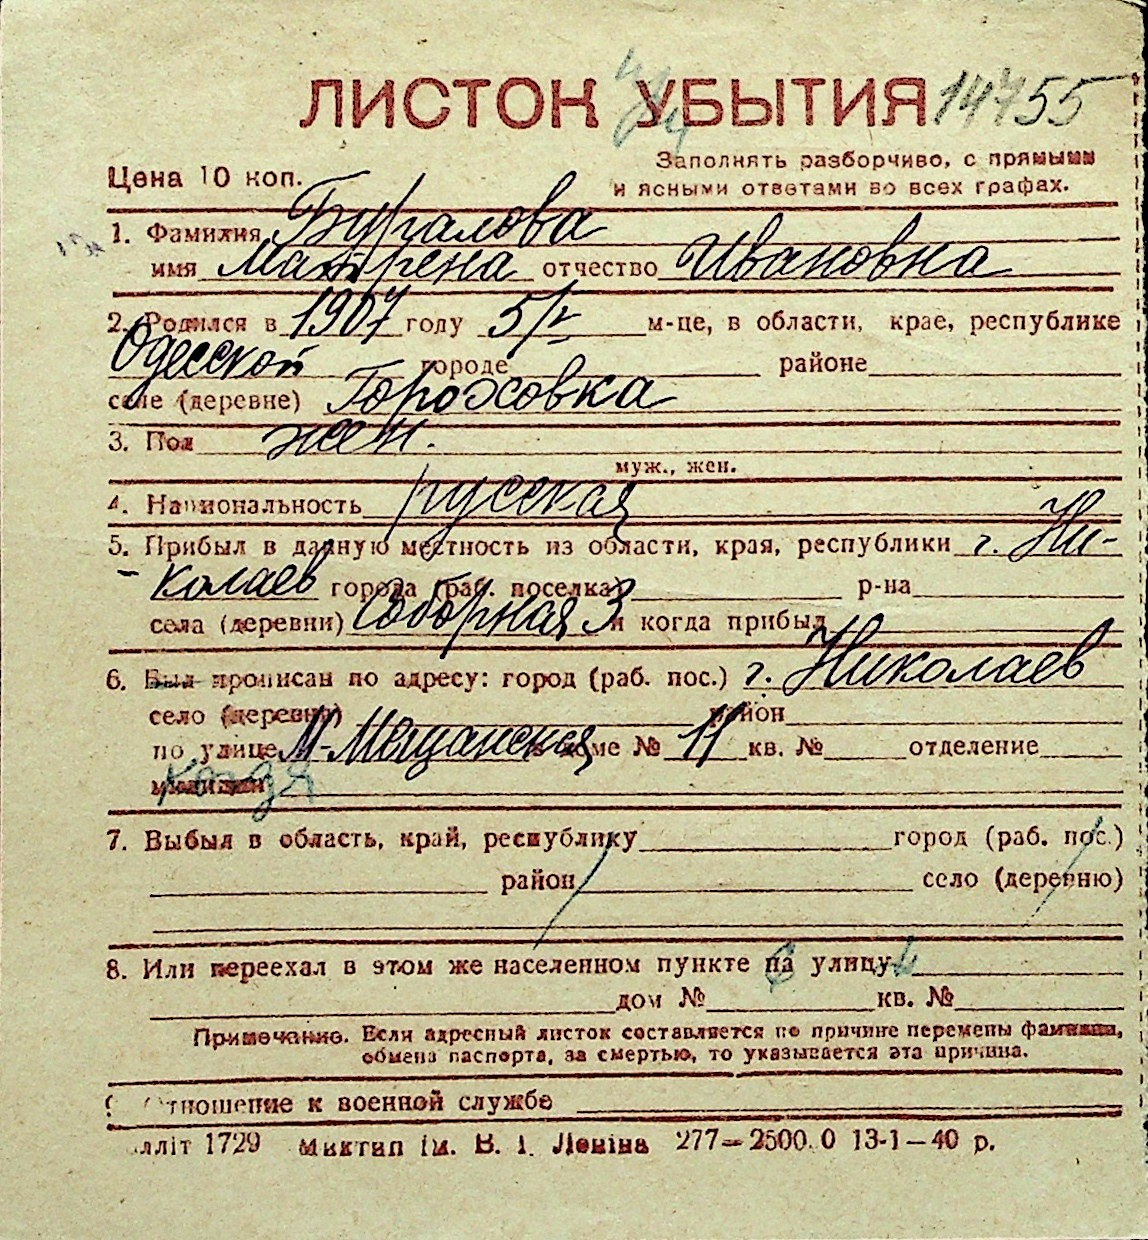 ЛИСТОК УБЫТИЯ 14755
Цена 10 коп.
Заполнять разборчиво, с прямыми
и ясными ответами во всех графах.
1. Фамилия Бугалова
имя Матрена отчество Ивановна
2. Родился в 1907 году 5/V м-це, в области, крае, республике
Одесской городе районе
селе (деревне) Гороховка
3. Пол жен.
муж., жен.
4. Национальность русская
5. Прибыл в данную местность из области, края, республики г. Ни-
-колаев города (раб. поселка) р-на
села (деревни) Соборная 3 и когда прибыл
6. Был прописан по адресу: город (раб. пос.) г. Николаев
село (деревня) район
по улице М-Мещанская в доме № 11 кв. № отделение
милиции
7. Выбыл в область, край, республику город (раб. пос.)
район село (деревню)
8. Или переехал в этом же населенном пункте на улицу
дом № кв. №
Примечание. Если адресный листок составляется по причине перемены фамилии,
обмена паспорта, за смертью, то указывается эта причина.
Отношение к военной службе
лліт 1729 Миктип ім. В. І. Леніна 277—2500.0 13-1—40 р.